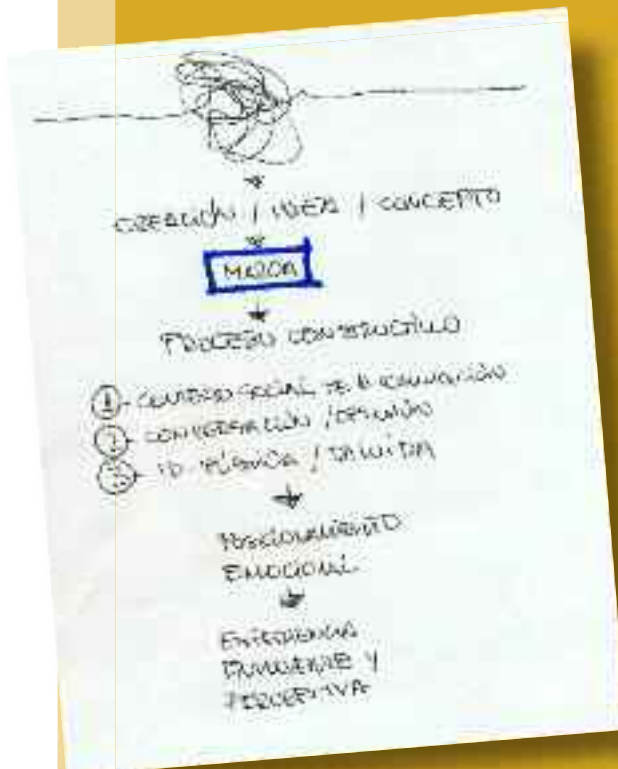 CREACIÓN / IDEA / CONCEPTO
MARCA
PROCESO CONSTRUCTIVO
1- SOCIAL DE LA COMUNICACIÓN
2- CONVERSACIÓN / OPINIÓN
3- ID /
POSICIONAMIENTO
EMOCIONAL
EXPERIENCIA
Y
PERCEPTIVA